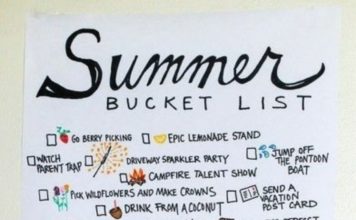 Summer
BUCKET LIST
GO BERRY PICKING
EPIC LEMONADE STAND
WATCH
PARENT TRAP
DRIVEWAY SPARKLER PARTY
JUMP OFF
THE PONTOON
BOAT
CAMPFIRE TALENT SHOW
PICK WILDFLOWERS AND MAKE CROWNS
SEND A
VACATION
POST CARD
DRINK FROM A COCONUT